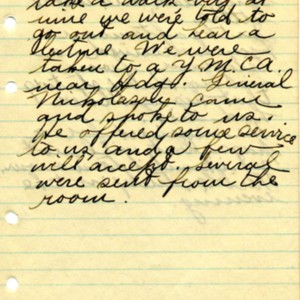 take a walk but at
nine we were told to
go out and hear a
lecture. We were
taken to a Y.M.C.A.
near Hdq. General
came
and spoke to us.
He offered some service
to us, and a few
will accept. Several
were sent from the
room.